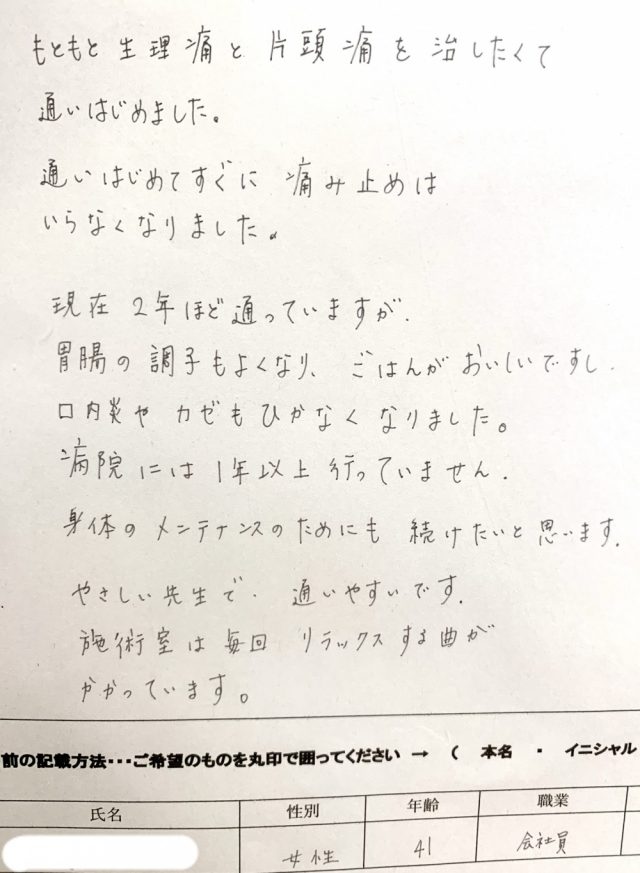 もともと生理痛と片頭痛を治したくて
通いはじめました。
通いはじめてすぐに 痛み止めは
いらなくなりました。
現在 2年ほど通っていますが、
胃腸の調子もよくなり、ごはんがおいしいですし、
口内炎や カゼもひかなくなりました。
病院には1年以上行っていません。
身体のメンテナンスのためにも 続けたいと思います。
やさしい先生で、通いやすいです。
施術室は毎回 リラックスする曲が
かかっています。
前の記載方法･･･ご希望のものを丸印で囲ってください → ( 本名 ・ イニシャル
氏名 性別 年齢 職業
女性 41 会社員